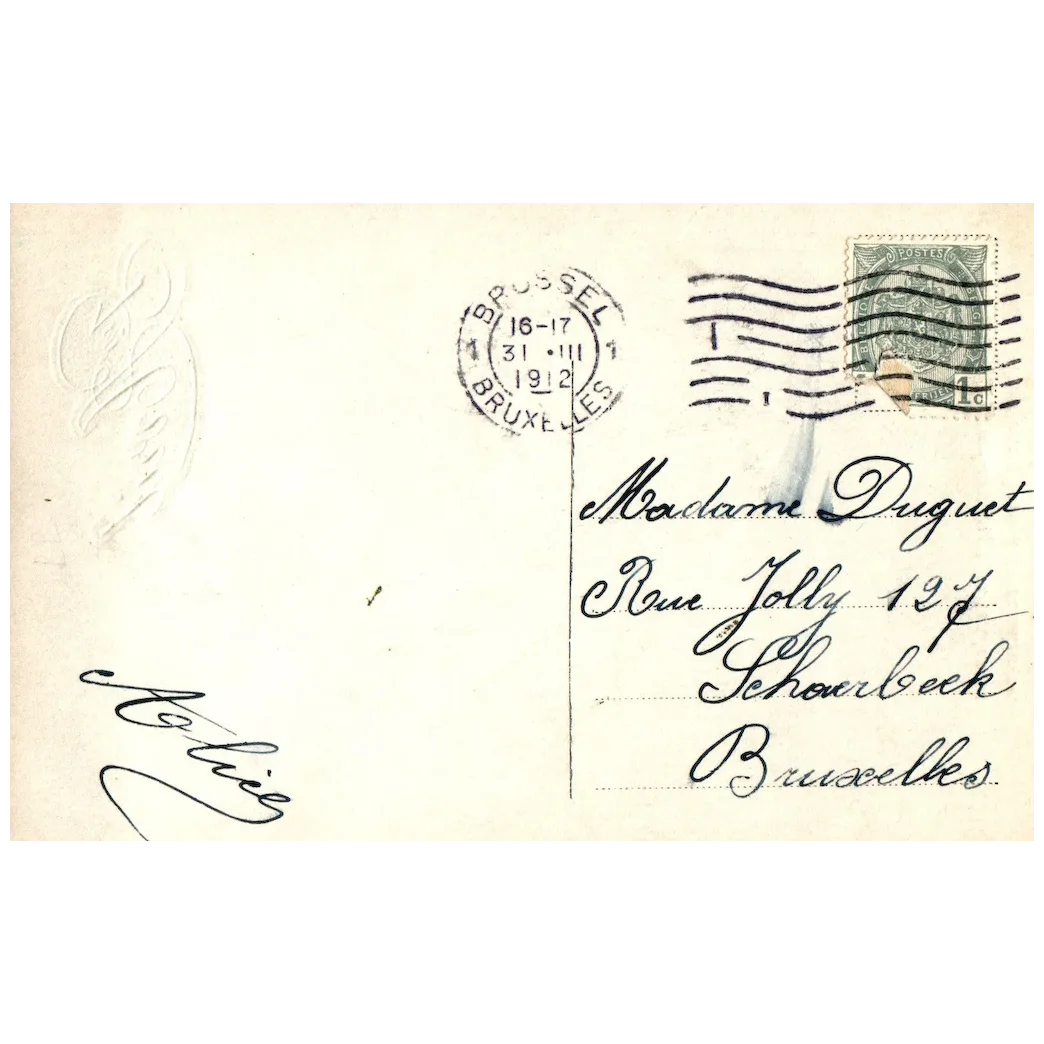 BRUSSEL
16-17
31 • III
1912
BRUXELLES
1 1
POSTES
1c
Madame Duguet
Rue Jolly 127
Schaerbeek
Bruxelles
Alice